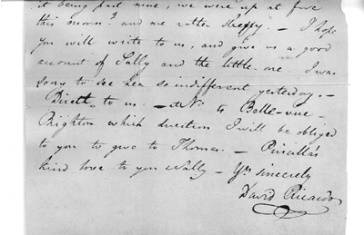 it being past nine, we were up at five
this morn.g and are rather sleepy. — I hope
you will write to us, and give us a good
account of Sally and the little one. I was
sorry to see her so indifferent yesterday. —
Direct to us. — at No to Belle-vue
Brighton which direction I will be obliged
to you to give to Thomas. — Priscilla's
kind love to you & Sally — Yrs sincerely
David Ricardo